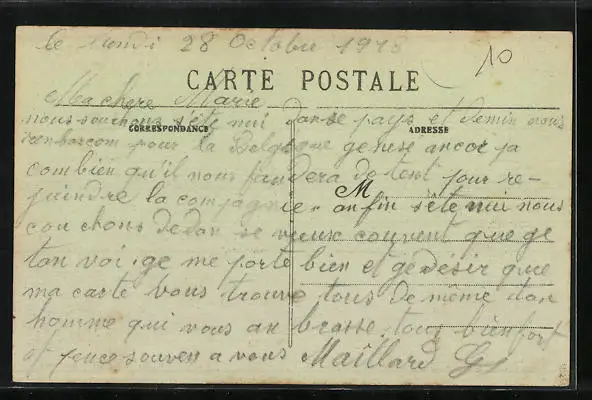 le Lundi 28 Octobre 1918
10
CARTE POSTALE
Ma chere Marie
nous souchons sete nui danse pays et demin nous
CORRESPONDANCE
ADRESSE
renbarcom pour la Belgique ge nesé ancor pa
combien qu'il nous faudera de tent pour re-
M
juindre la compagnie. anfin sete nui nous
couchons dedan se vieux couvent que ge
tan voi. ge me porte bien et ge désir que
ma carte vous trouve tous de même ton
homme qui vous anbrasse tous bien fort
et pence souven a vous Maillard G